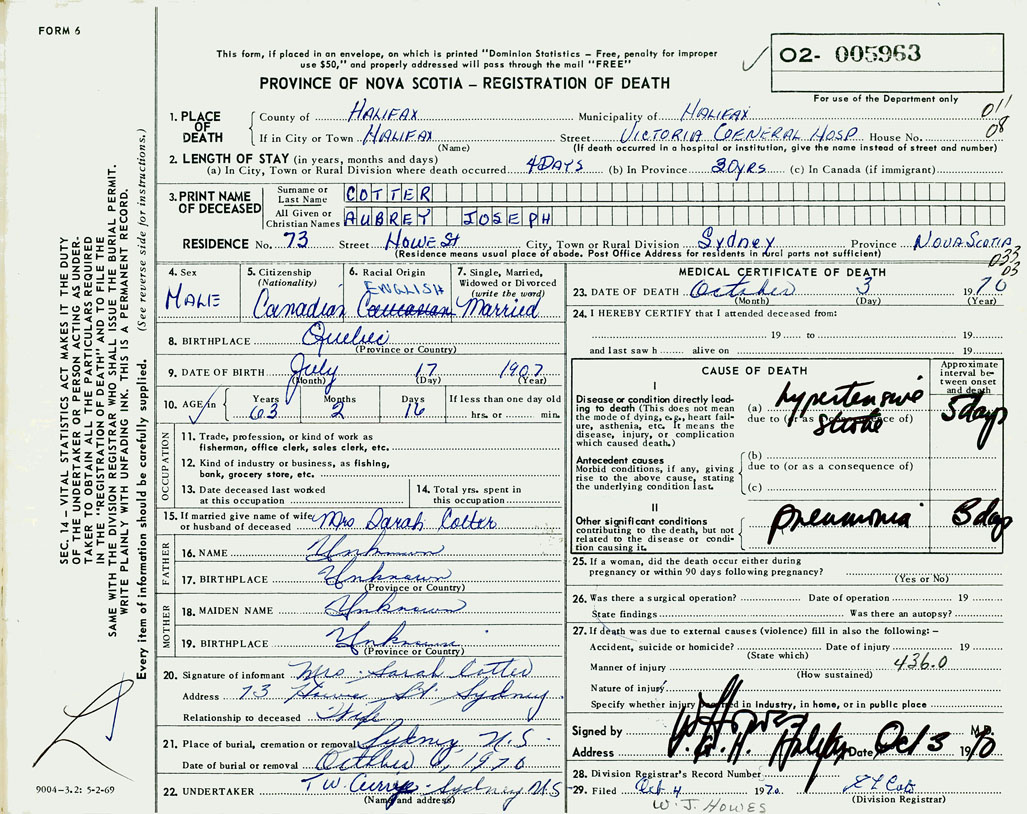 FORM 6
This form, if placed in an envelope, on which is printed "Dominion Statistics – Free, penalty for improper
use $50," and properly addressed will pass through the mail "FREE"
PROVINCE OF NOVA SCOTIA – REGISTRATION OF DEATH
O2- 005963
For use of the Department only
011
08
1. PLACE OF DEATH
County of HALIFAX Municipality of HALIFAX
If in City or Town HALIFAX Street VICTORIA GENERAL HOSP. House No.
(Name) (If death occurred in a hospital or institution, give the name instead of street and number)
2. LENGTH OF STAY (in years, months and days)
(a) In City, Town or Rural Division where death occurred 4 DAYS (b) In Province 30 YRS (c) In Canada (if immigrant)
3. PRINT NAME OF DECEASED
Surname or Last Name COTTER
All Given or Christian Names AUBREY JOSEPH
RESIDENCE No. 73 Street HOWE St City, Town or Rural Division Sydney Province NOVA SCOTIA
(Residence means usual place of abode. Post Office Address for residents in rural parts not sufficient)
033
03
4. Sex
MALE
5. Citizenship
(Nationality)
Canadian
6. Racial Origin
ENGLISH
Caucasian
7. Single, Married,
Widowed or Divorced
(write the word)
Married
8. BIRTHPLACE Quebec
(Province or Country)
9. DATE OF BIRTH July 17 1907
(Month) (Day) (Year)
10. AGE in Years 63 Months 2 Days 16 If less than one day
hrs. or min.
OCCUPATION
11. Trade, profession, or kind of work as
fisherman, office clerk, sales clerk, etc.
12. Kind of industry or business, as fishing,
bank, grocery store, etc.
13. Date deceased last worked
at this occupation
14. Total yrs. spent in
this occupation
15. If married give name of wife
or husband of deceased Mrs Sarah Cotter
FATHER
16. NAME Unknown
17. BIRTHPLACE Unknown
(Province or Country)
MOTHER
18. MAIDEN NAME Unknown
19. BIRTHPLACE Unknown
(Province or Country)
20. Signature of informant Mrs. Sarah Cotter
Address 73 Howe St. Sydney
Relationship to deceased Wife
21. Place of burial, cremation or removal Sydney N.S.
Date of burial or removal October 6, 1970
22. UNDERTAKER T.W. Curry Sydney N.S.
(Name and address)
MEDICAL CERTIFICATE OF DEATH
23. DATE OF DEATH October 3 1970
(Month) (Day) (Year)
24. I HEREBY CERTIFY that I attended deceased from:
19 to 19
and last saw h alive on 19
CAUSE OF DEATH
Approximate interval between onset and death
I
Disease or condition directly leading
to death (This does not mean
the mode of dying, e.g., heart failure,
asthenia, etc. It means the
disease, injury, or complication
which caused death.)
(a) hypertensive
due to (or as a consequence of)
stroke
5 days
Antecedent causes
Morbid conditions, if any, giving
rise to the above cause, stating
the underlying condition last.
(b)
due to (or as a consequence of)
(c)
II
Other significant conditions
contributing to the death, but not
related to the disease or condition
causing it.
pneumonia
3 days
25. If a woman, did the death occur either during
pregnancy or within 90 days following pregnancy?
(Yes or No)
26. Was there a surgical operation? Date of operation 19
State findings Was there an autopsy?
27. If death was due to external causes (violence) fill in also the following: –
Accident, suicide or homicide? Date of injury 19
(State which)
Manner of injury 436.0
(How sustained)
Nature of injury
Specify whether injury occurred in industry, in home, or in public place
Signed by W J Howes M.D.
Address V.G.H. Halifax Date Oct 3 1970
28. Division Registrar's Record Number
29. Filed Oct 4 1970
(Division Registrar)
W. J. HOWES
SEC. 14 – VITAL STATISTICS ACT MAKES IT THE DUTY
OF THE UNDERTAKER OR PERSON ACTING AS UNDERTAKER
TO OBTAIN ALL THE PARTICULARS REQUIRED
IN THE "REGISTRATION OF DEATH" AND TO FILE THE
SAME WITH THE DIVISION REGISTRAR WHO SHALL ISSUE THE BURIAL PERMIT.
WRITE PLAINLY WITH UNFADING INK. THIS IS A PERMANENT RECORD.
Every item of information should be carefully supplied. (See reverse side for instructions.)
9004-3.2: 5-2-69